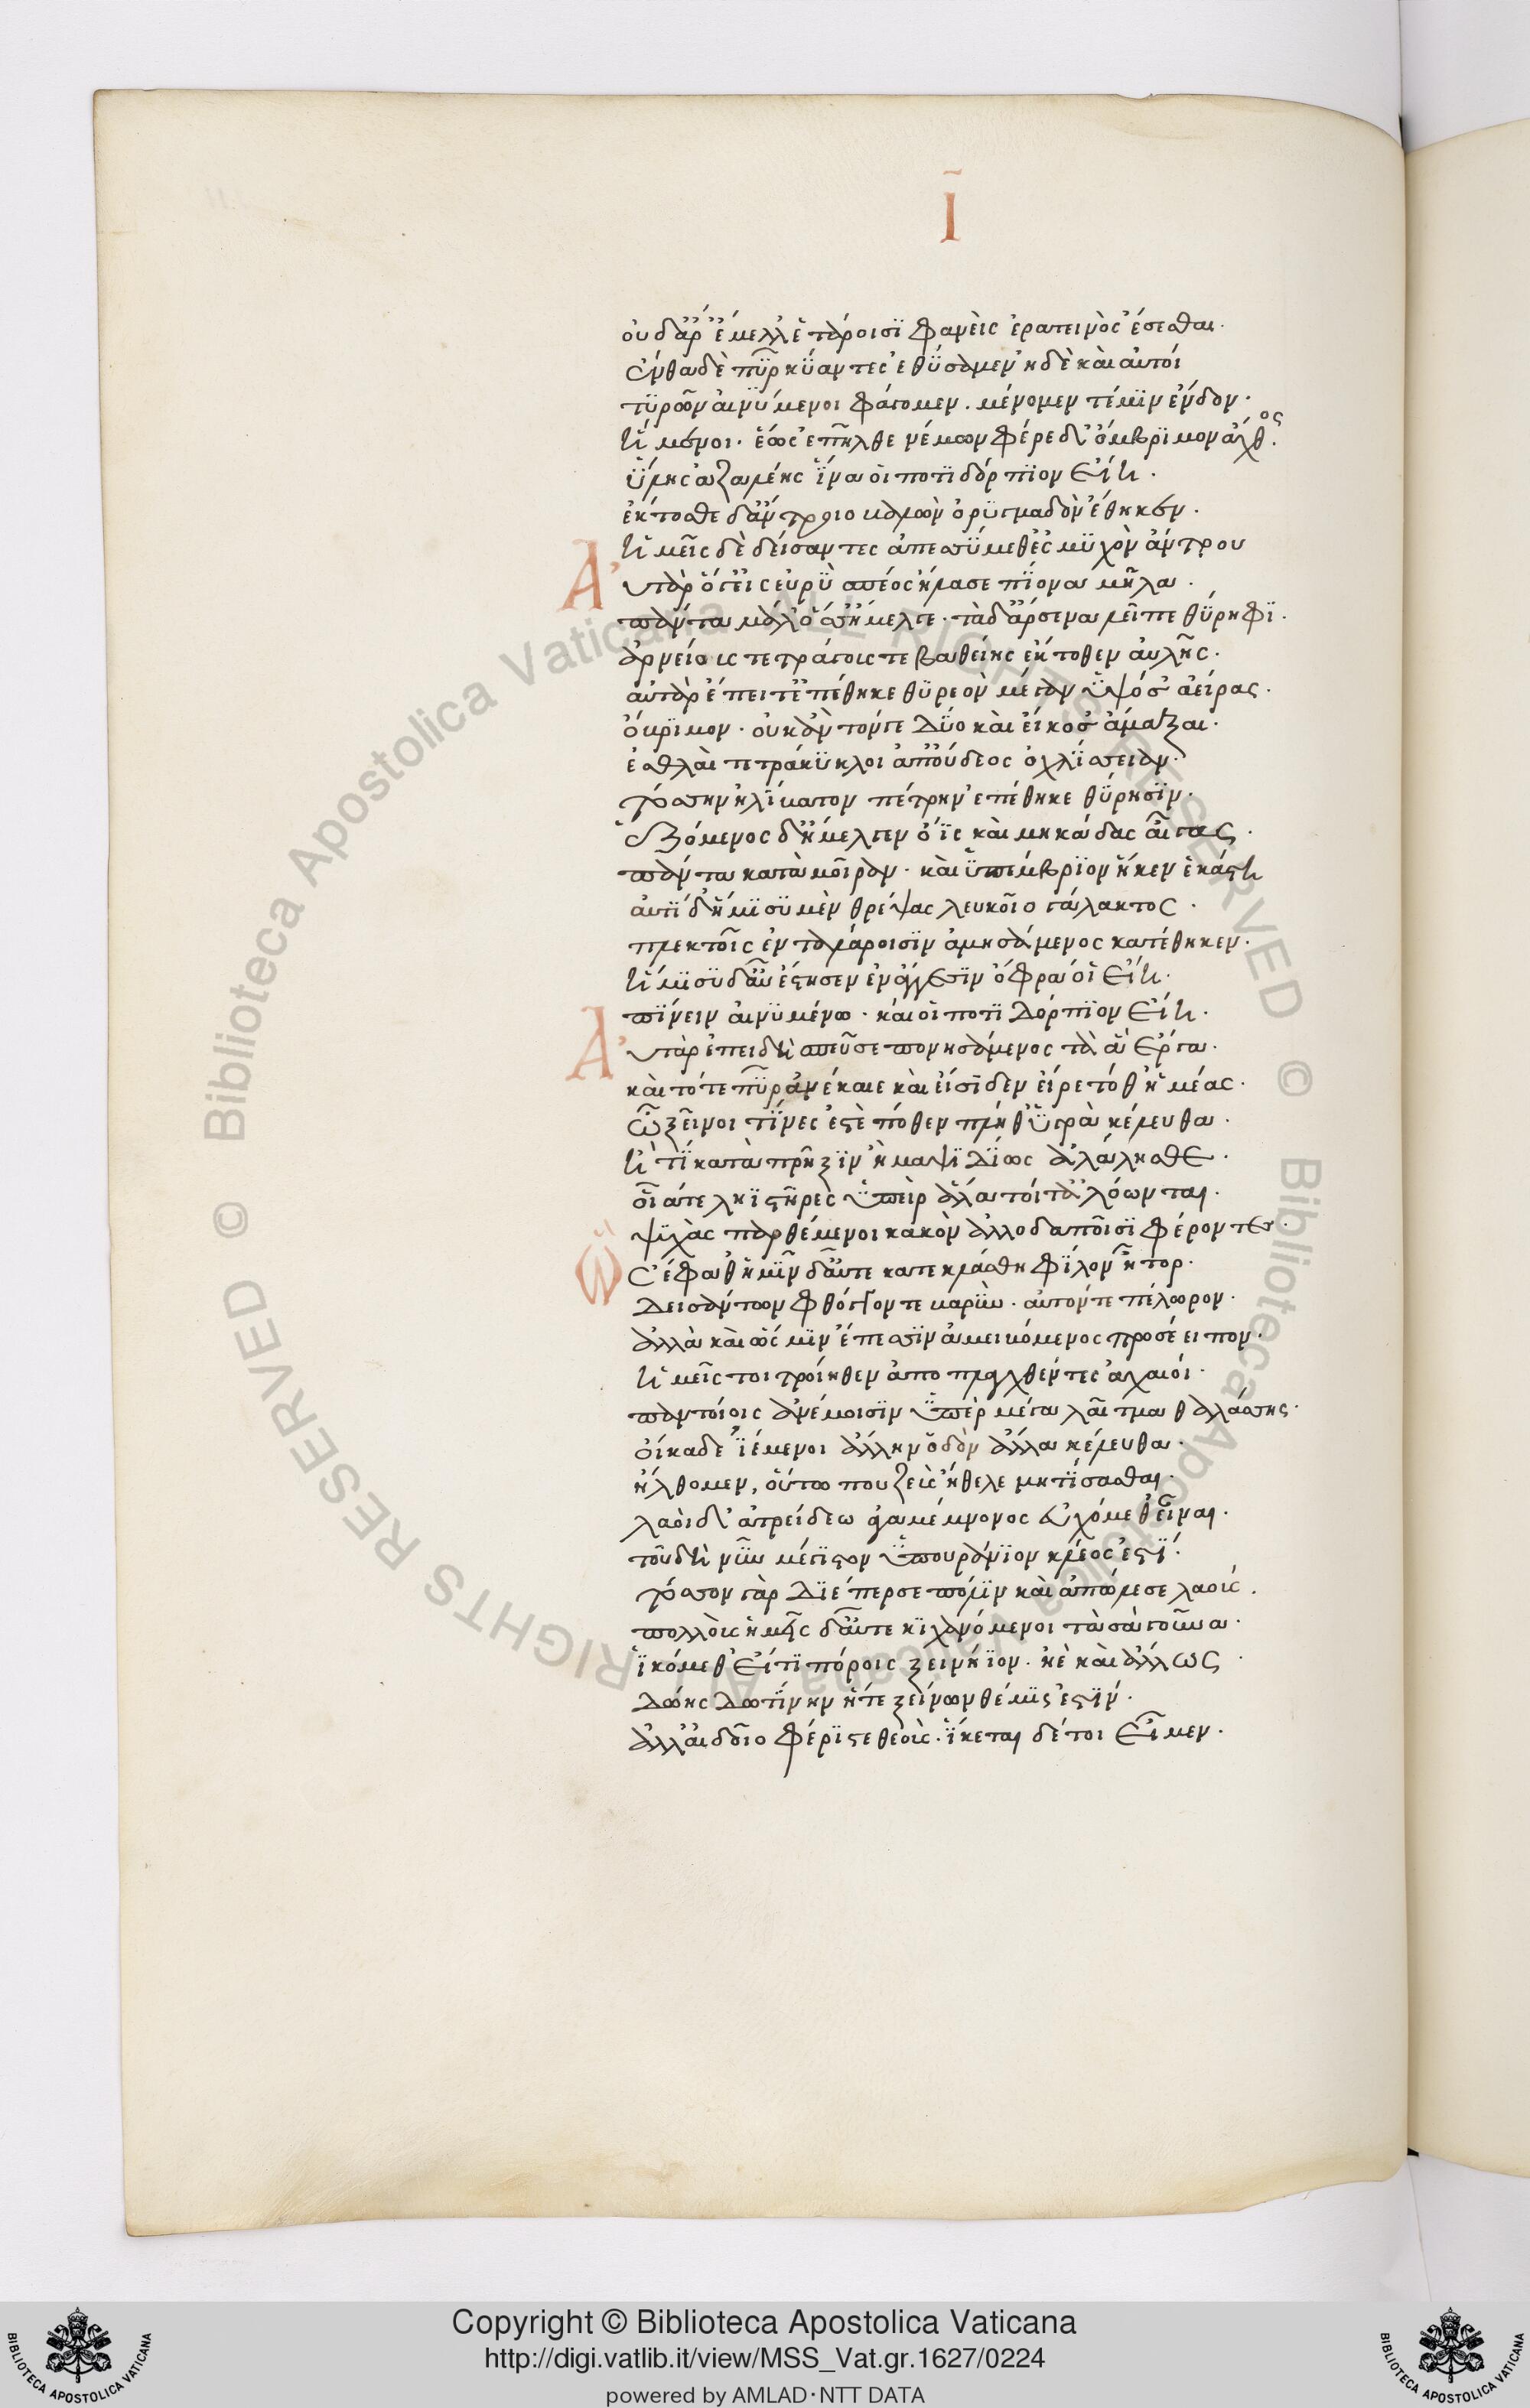 Ϊ
οὐδ' ἄρ' ἔμελλ' ἑτάροισϊ φανεὶς ἐρατεινὸς ἔσεσθαι.
ἔνθα δὲ πῦρ κύαντες ἐθύσαμεν ἠδὲ καὶ αὐτοὶ
τυρῶν αἰνύμενοι φάγομεν. μένομεν τέ μιν ἔνδον.
ἥμενοι. ἕως ἐπῆλθε νέμων φέρε δ' ὄμβριμον ἄχθος.
ὕλης ἀζαλέης ἵνα οἱ ποτὶ δόρπιον εἴη.
ἔκτοσθε δ' ἄντροιο βαλὼν ὀρυγμαδὸν ἔθηκεν.
ἡμεῖς δὲ δείσαντες ἀπεσσύμεθ' ἐς μυχὸν ἄντρου
Αὐτὰρ ὅγ' εἰς εὐρὺ σπέος ἤλασε πίονα μῆλα.
πάντα μάλ' ὅσσ' ἤμελγε. τὰ δ' ἄρσενα λεῖπε θύρηφϊ.
ἀρνειούς τε τράγους τε βαθείης ἔκτοθεν αὐλῆς.
αὐτὰρ ἔπειτ' ἐπέθηκε θυρεὸν μέγαν ὑψόσ' ἀείρας.
ὄβριμον. οὐκ ἂν τόνγε δύο καὶ εἴκοσ' ἄμαξαι.
ἐσθλαὶ τετράκυκλοι ἀπ' οὔδεος ὀχλίσσειαν.
τόσσην ἠλίβατον πέτρην ἐπέθηκε θύρησϊν.
ἑζόμενος δ' ἤμελγεν ὄϊς καὶ μηκάδας αἶγας.
πάντα κατὰ μοῖραν. καὶ ὑπ' ἔμβρυον ἧκεν ἑκάστη
αὐτί δ' ἥμισυ μὲν θρέψας λευκοῖο γάλακτος.
πλεκτοῖς ἐν ταλάροισϊν ἀμησάμενος κατέθηκεν.
ἥμισυ δ' αὖ ἔστησεν ἐν ἄγγεσϊν ὄφρα οἱ εἴη.
πίνειν αἰνυμένω. καί οἱ ποτὶ δόρπιον εἴη.
Αὐτὰρ ἐπειδὴ σπεῦσε πονησάμενος τὰ ἃ ἔργα.
καὶ τότε πῦρ ἀνέκαιε καὶ εἴσιδεν εἴρετό θ' ἡμέας.
ὦ ξεῖνοι τίνες ἐστὲ πόθεν πλῆθ' ὑγρὰ κέλευθα.
ἤ τι κατὰ πρῆξιν ἢ μαψιδίως ἀλάλησθε.
οἷά τε ληϊστῆρες ὑπεὶρ ἅλα τοί τ' ἀλόωνται.
ψυχὰς παρθέμενοι κακὸν ἀλλοδαποῖσϊ φέροντες.
Ὣς ἔφαθ' ἡμῖν δ' αὖτε κατεκλάσθη φίλον ἦτορ.
δεισάντων φθόγγόν τε βαρὺν. αὐτόν τε πέλωρον.
ἀλλὰ καὶ ὥς μιν ἔπεσσϊν ἀμειβόμενος προσέειπον.
ἡμεῖς τοι τροίηθεν ἀποπλαχθέντες ἀχαιοί.
παντοίοις ἀνέμοισϊν ὑπὲρ μέγα λαῖτμα θαλάσσης.
οἴκαδε ἱέμενοι ἄλλην ὁδὸν ἄλλα κέλευθα.
ἤλθομεν, οὕτω που ζεὺς ἤθελε μητίσασθαι.
λαοὶ δ' ἀτρείδεω ἀγαμέμνονος εὐχόμεθ' εἶναι.
τοῦ δὴ νῦν μέγιστον ὑπουράνιον κλέος ἐστί.
τόσσην γὰρ διέπερσε πόλιν καὶ ἀπώλεσε λαούς.
πολλοὺς ἡμεῖς δ' αὖτε κιχανόμενοι τὰ σὰ γοῦνα.
ἱκόμεθ' εἴ τι πόροις ξεινήϊον. ἠὲ καὶ ἄλλως.
δώης δωτίνην ἥτε ξείνων θέμις ἐστίν.
ἀλλ' αἰδοῖο φέριστε θεούς. ἱκέται δέ τοι εἶμεν.
© Biblioteca Apostolica Vaticana ALL RIGHTS RESERVED © Biblioteca Apostolica Vaticana ALL RIGHTS RESERVED
Copyright © Biblioteca Apostolica Vaticana
http://digi.vatlib.it/view/MSS_Vat.gr.1627/0224
powered by AMLAD·NTT DATA
BIBLIOTECA APOSTOLICA VATICANA
BIBLIOTECA APOSTOLICA VATICANA